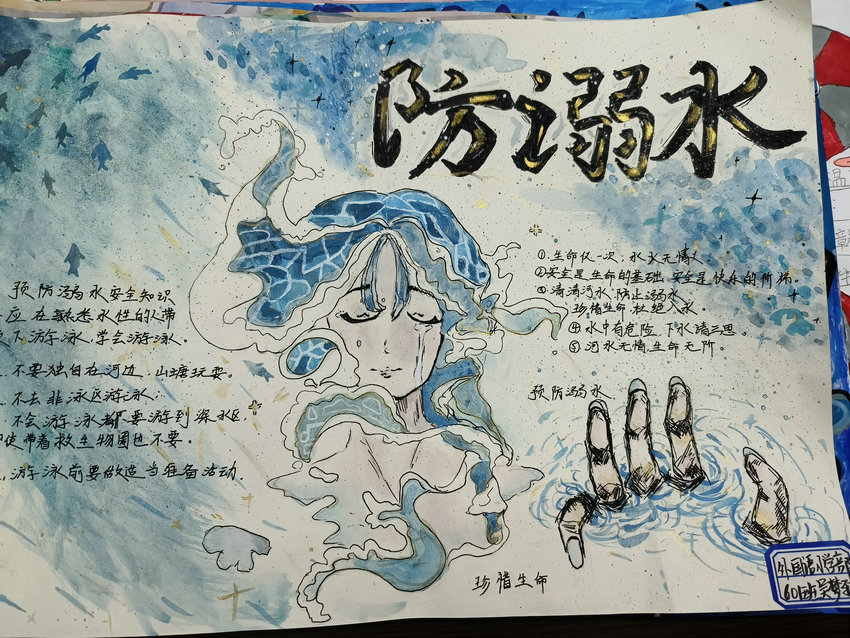 防溺水
预防溺水安全知识
应在熟悉水性的人带
下游泳,学会游泳。
不要独自在河边,山塘玩耍。
不去非泳区游泳;
不会游泳者不要游到深水区,
使带着救生物圈也不要。
游泳前要做适当准备活动.
①生命仅一次,水火无情人.
②安全是生命的基础,安全是快乐的阶梯。
③清清河水,防止溺水,
珍惜生命,杜绝入水。
④水中有危险,下水请三思。
⑤河水无情,生命无阶。
预防溺水
珍惜生命
外国语小学部
601班